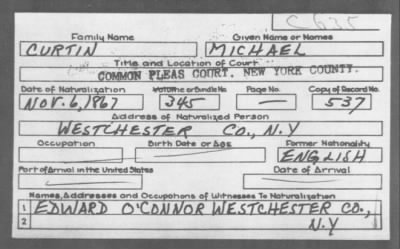 C 635
Family Name Given Name or Names
CURTIN MICHAEL
Title and Location of Court
COMMON PLEAS COURT. NEW YORK COUNTY.
Date of Naturalization Volume or Bundle No. Page No. Copy of Record No.
NOV. 6, 1867 345 — 537
Address of Naturalized Person
WESTCHESTER CO., N.Y
Occupation Birth Date or Age Former Nationality
ENGLISH
Port of Arrival in the United States Date of Arrival
Names, Addresses and Occupations of Witnesses To Naturalization
1 EDWARD O'CONNOR WESTCHESTER CO.,
2 N.Y